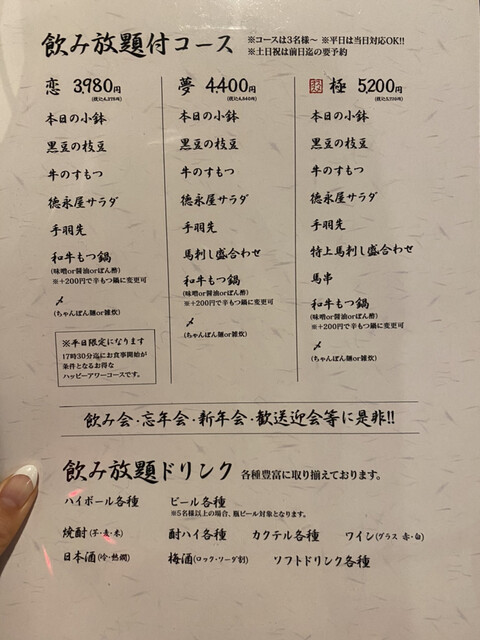 飲み放題付コース ※コースは3名様～ ※平日は当日対応OK!!
※土日祝は前日迄の要予約
恋 3,980円
(税込4,378円)
本日の小鉢
黒豆の枝豆
牛のすもつ
徳永屋サラダ
手羽先
和牛もつ鍋
(味噌or醤油orぽん酢)
※+200円で辛もつ鍋に変更可
〆
(ちゃんぽん麺or雑炊)
※平日限定になります
17時30分迄にお食事開始が
条件となるお得な
ハッピーアワーコースです。
夢 4,400円
(税込4,840円)
本日の小鉢
黒豆の枝豆
牛のすもつ
徳永屋サラダ
手羽先
馬刺し盛合わせ
和牛もつ鍋
(味噌or醤油orぽん酢)
※+200円で辛もつ鍋に変更可
〆
(ちゃんぽん麺or雑炊)
極 5,200円
(税込5,720円)
本日の小鉢
黒豆の枝豆
牛のすもつ
徳永屋サラダ
手羽先
特上馬刺し盛合わせ
馬串
和牛もつ鍋
(味噌or醤油orぽん酢)
※+200円で辛もつ鍋に変更可
〆
(ちゃんぽん麺or雑炊)
飲み会・忘年会・新年会・歓送迎会等に是非!!
飲み放題ドリンク 各種豊富に取り揃えております。
ハイボール各種 ビール各種
※5名様以上の場合、瓶ビール対象となります。
焼酎(芋・麦・米) 酎ハイ各種 カクテル各種 ワイン(グラス 赤・白)
日本酒(冷・熱燗) 梅酒(ロック・ソーダ割) ソフトドリンク各種